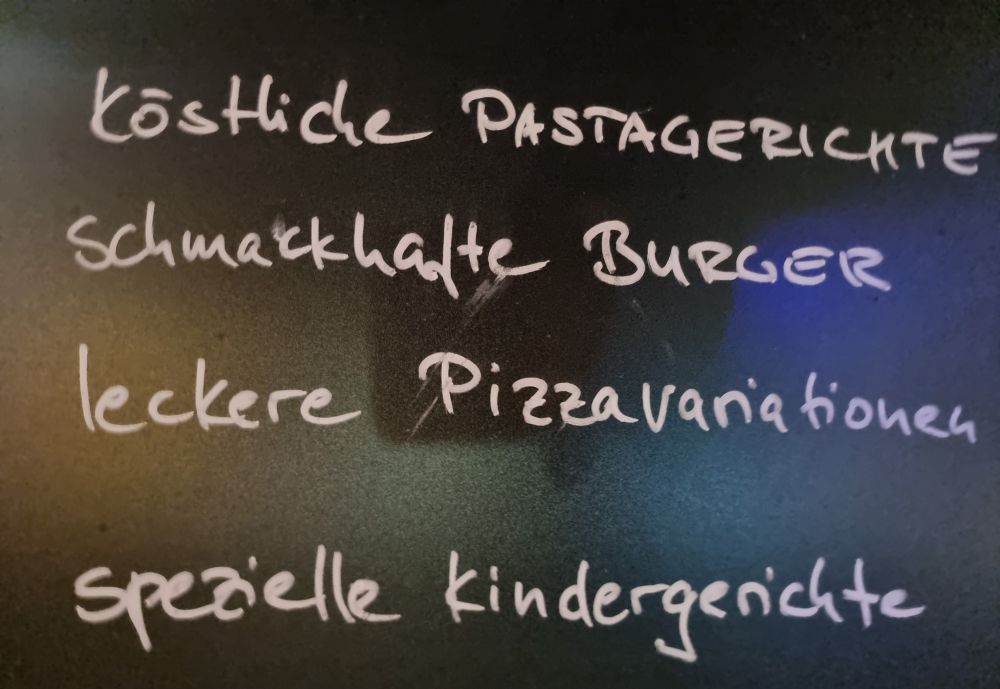 köstliche PASTAGERICHTE
schmackhafte BURGER
leckere Pizzavariationen
spezielle Kindergerichte